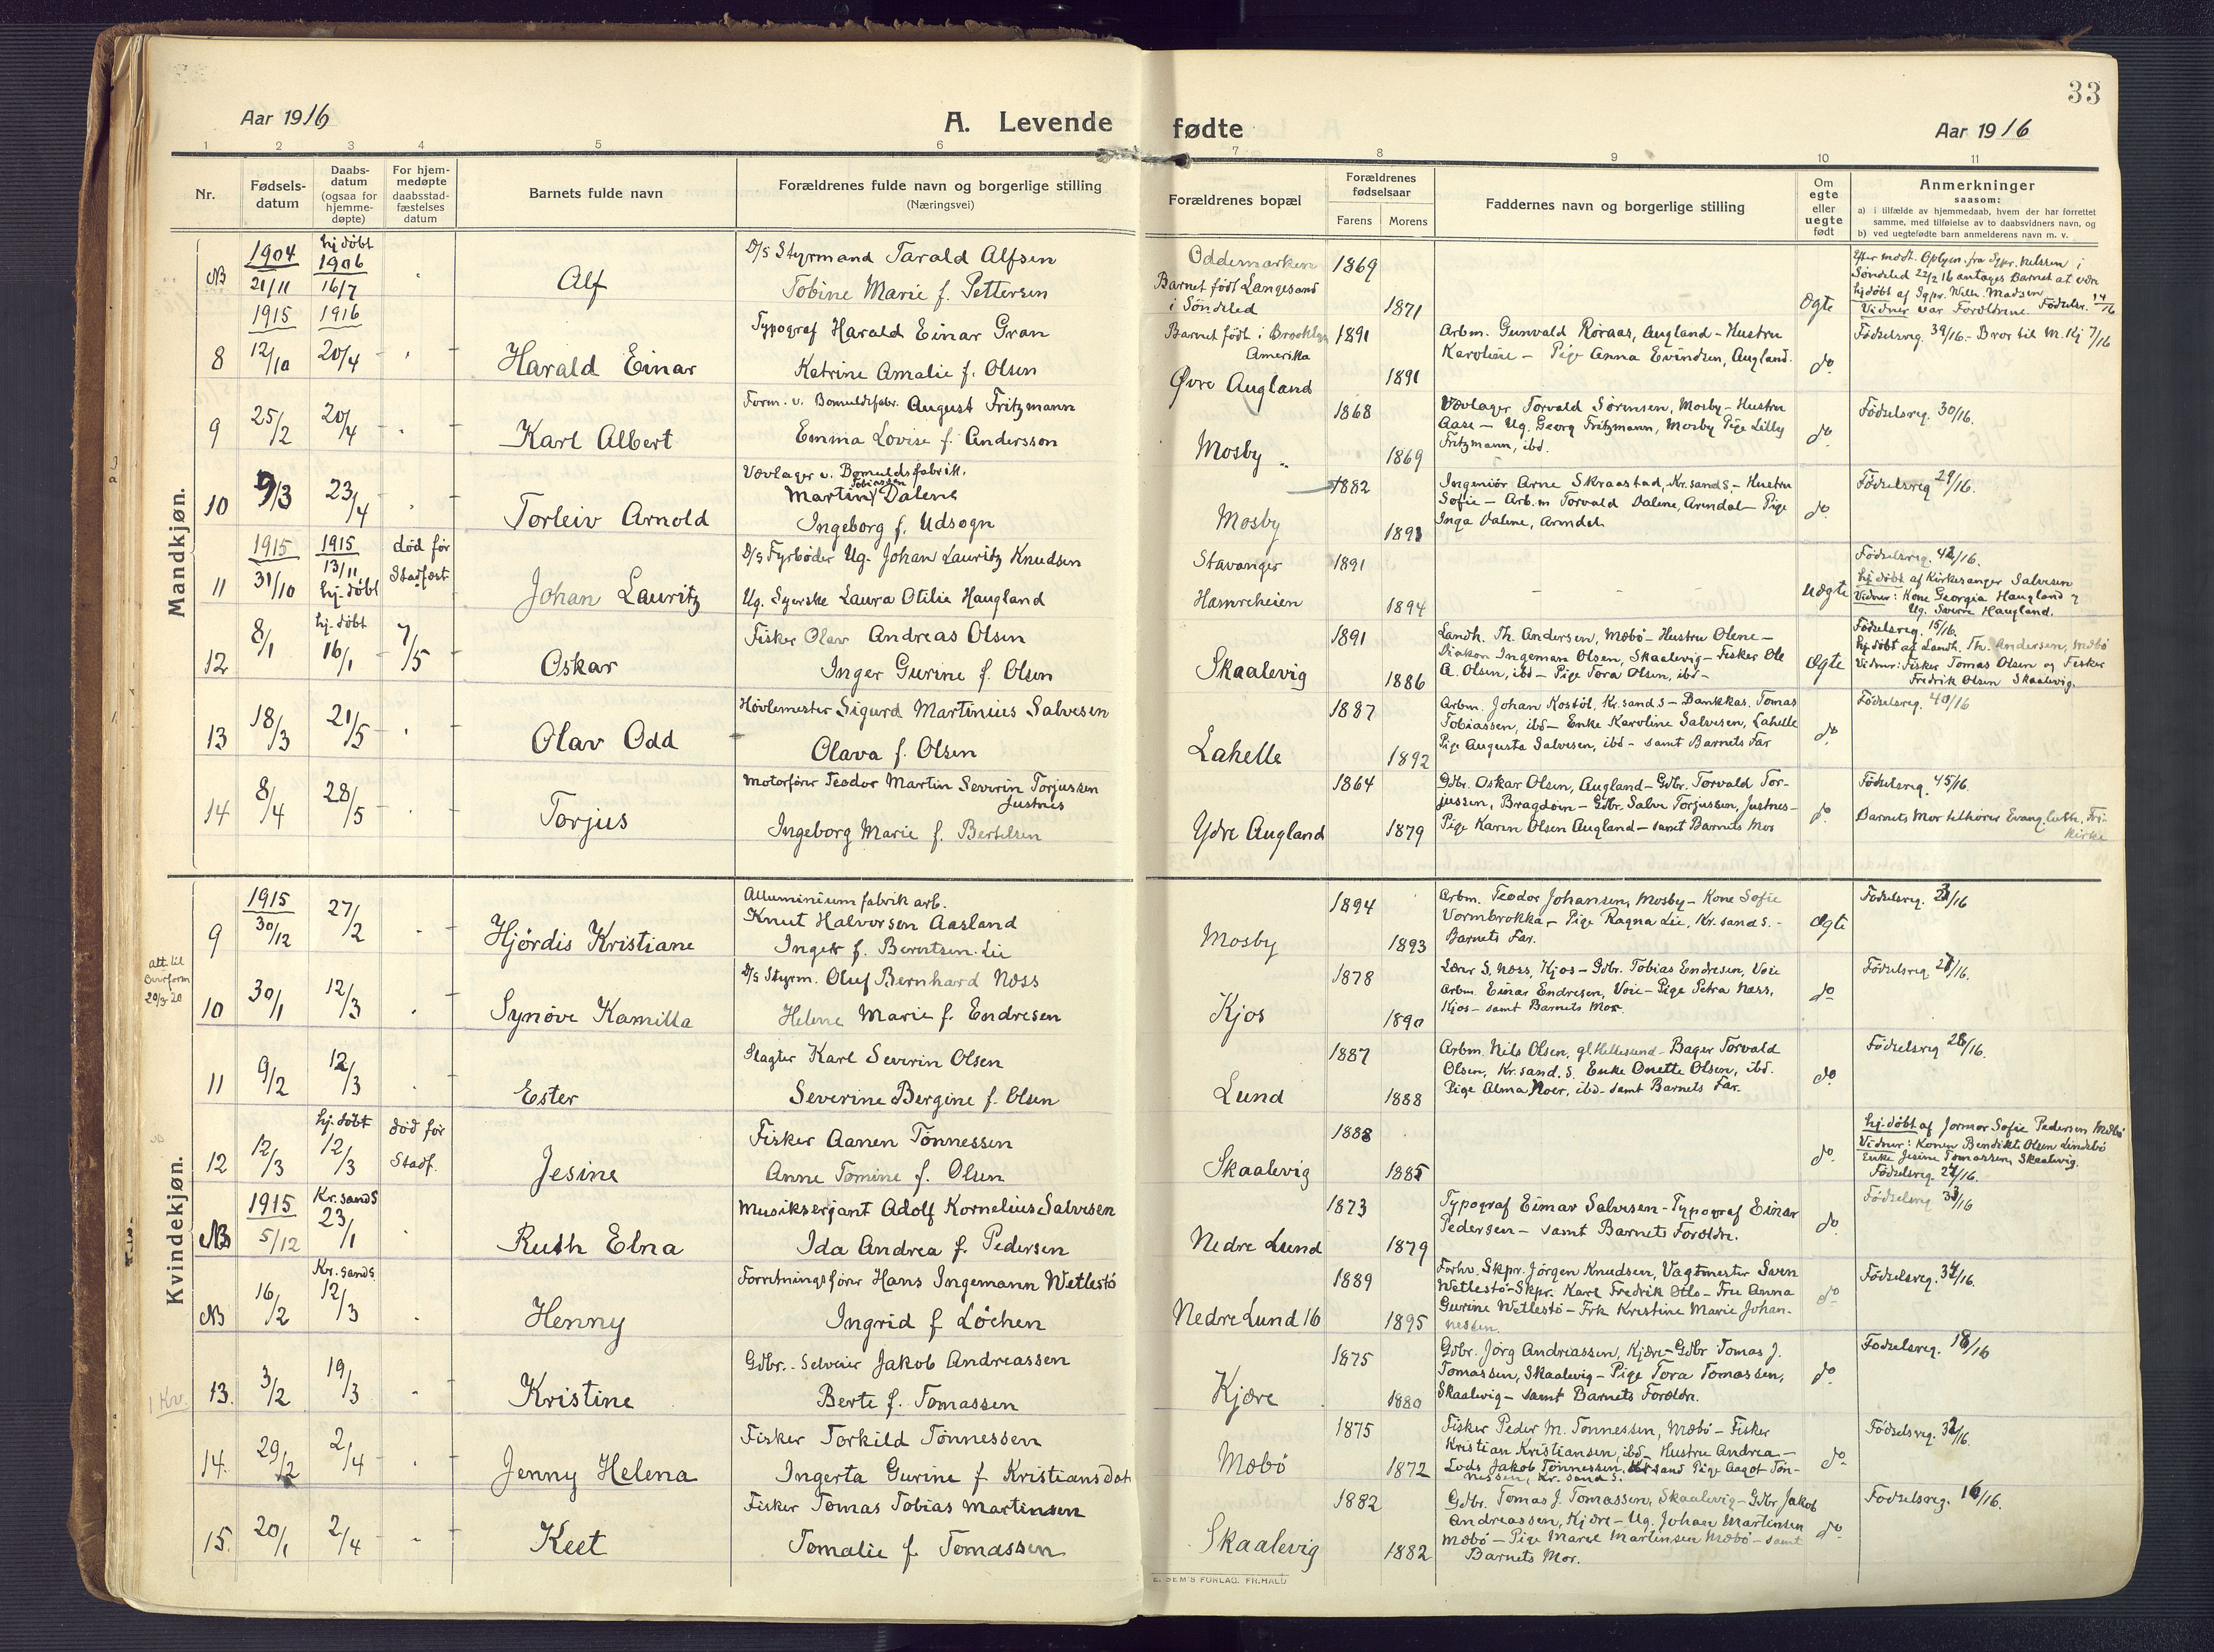 33
Aar 1916
A. Levende
fødte
Aar 1916
1 2 3 4 5 6 7 8 9 10 11
Nr.
Fødsels-
datum
Daabs-
datum
(ogsaa for
hjemme-
døpte)
For hjem-
medøpte
daabsstad-
fæstelses
datum
Barnets fulde navn
Forældrenes fulde navn og borgerlige stilling
(Næringsvei)
Forældrenes bopæl
Forældrenes
fødselsaar
Farens Morens
Faddernes navn og borgerlige stilling
Om
egte
eller
uegte
født
Anmerkninger
saasom:
a) i tilfælde av hjemmedaab, hvem der har forrettet
samme, med tilføielse av to daabsvidners navn, og
b) ved uegtefødte barn anmelderens navn m. v.
Mandkjøn.
NB
1904
21/11
hj. döbt
1906
16/7
Alf
D/S Styrmand Tarald Alfsen
Tobine Marie f. Pettersen
Oddemarken
Barnet födt Langesand
i Söndeled
1869
1871
Ægte
Söndeled 22/2 16 antages Barnet at være
hj. döbt af Sgpr. Wilh. Madsen
Vidner var Forældrene. Födselsr. 14/16
8
1915
12/10
1916
20/4
Harald Einar
Typograf Harald Einar Gran
Katrine Amalie f. Olsen
Barnet födt i Brooklyn
Amerika
Øvre Augland
1891
1891
Arbm. Gunvald Röraas, Augland - Hustru
Karoline - Pige Anna Evindsen, Augland.
do
Födselsreg. 39/16 - Bror til M. Kj 7/16
9
25/2
20/4
Karl Albert
Form. v. Bomuldsfabr. August Fritzmann
Emma Lovise f. Andersson
Mosby
1868
1869
Vævlager Torvald Sörensen, Mosby - Hustru
Aase - Ug. Georg Fritzmann, Mosby Pige Lilly
Fritzmann, ibd.
do
Födselsreg. 30/16.
10
9/3
23/4
Torleiv Arnold
Vævlager v. Bomuldsfabrik.
Tobiassen
Martin Dalene
Ingeborg f. Udsogn
Mosby
1882
1891
Ingeniör Arne Skraastad, Kr.sand S. - Hustru
Sofie - Arb.m Torvald Dalene, Arendal - Pige
Inga Dalene, Arendal
do
Födselsreg 29/16.
11
1915
31/10
1915
13/11
hj. döbt
död før
Stadfæst.
Johan Lauritz
D/S Fyrböder Ug. Johan Lauritz Knudsen
Ug. Syerske Laura Otilie Haugland
Stavanger
Hamreheien
1891
1894
Uægte
Födselsreg. 42/16.
hj. döbt af Kirkesanger Salvesen
Vidner: Kone Georgia Haugland
Ug. Sverre Haugland.
12
8/1
hj. döbt
16/1
7/5
Oskar
Fisker Olav Andreas Olsen
Inger Gurine f. Olsen
Skaalevig
1891
1886
Landh. Th. Andersen, Mæbö - Hustru Olene -
Diakon Ingeman Olsen, Skaalevig - Fisker Ole
A. Olsen, ibd - Pige Tora Olsen, ibd -
Ægte
Födselsreg. 15/16.
hj. döbt af Landh. Th. Andersen, Mæbö
Vidner: Fisker Tomas Olsen og Fisker
Fredrik Olsen Skaalevig.
13
18/3
21/5
Olav Odd
Hövlemester Sigurd Martinius Salvesen
Olava f. Olsen
Lahelle
1887
1892
Arbm. Johan Kostöl, Kr. sand S - Bankkas. Tomas
Tobiassen, ibd - Enke Karoline Salvesen, Lahelle
Pige Augusta Salvesen, ibd - samt Barnets Far
do
Födselsreg. 40/16
14
8/4
28/5
Torjus
Motorförer Teodor Martin Severin Torjussen
Justnes
Ingeborg Marie f. Bertelsen
Ydre Augland
1864
1879
Gdbr. Oskar Olsen, Augland - Gdbr. Torvald Tor-
jussen, Bragdöen - Gdbr. Salve Torjussen, Justnes -
Pige Karen Olsen Augland - samt Barnets Mor
do
Födselsreg. 45/16.
Barnets Mor tilhører Evang. Luth. Fri-
kirke
Kvindekjøn.
9
1915
30/12
27/2
Hjördis Kristiane
Alluminium fabrik arb.
Knut Halvorsen Aasland
Inger f. Berentsen Lie
Mosby
1894
1893
Arbm. Teodor Johansen, Mosby - Kone Sofie
Vormbrokka - Pige Ragna Lie, Kr. sand S. -
Barnets Far.
Ægte
att. til
20/3-20
10
30/1
12/3
Synöve Kamilla
D/S Styrm. Oluf Bernhard Næss
Helene Marie f. Endresen
Kjos
1878
1890
Lærer S. Næss, Kjos - Gdbr. Tobias Endresen, Voie
Arbm. Einar Endresen, Voie - Pige Petra Næss,
Kjos - samt Barnets Mor.
do
11
9/2
12/3
Ester
Slagter Karl Severin Olsen
Severine Bergine f. Olsen
Lund
1887
1888
Arbm. Nils Olsen, gl. Hellesund - Bager Torvald
Olsen, Kr. sand. S. Enke Onette Olsen, ibd.
Pige Alma Noer, ibd - samt Barnets Far.
do
Födselsreg 28/16.
12
12/3
hj. döbt
12/3
död før
Stadf.
Jesine
Fisker Aanen Tönnessen
Anne Tomine f. Olsen
Skaalevig
1888
1885
do
hj. döbt af Jormor Sofie Pedersen Mæbö
Vidner: Konen Bendikte Olsen Lindebö
Enke Jesine Tomassen, Skaalevig.
Födselsreg. 27/16.
NB
1915
5/12
Kr. sand S
23/1
Ruth Elna
Musiksersjant Adolf Kornelius Salvesen
Ida Andrea f. Pedersen
Nedre Lund
1873
1879
Typograf Einar Salvesen - Typograf Einar
Pedersen - samt Barnets Forældre.
do
Födselsreg 33/16
NB
16/2
Kr. sand S
12/3
Henny
Forretningsförer Hans Ingemann Wetlestö
Ingrid f Löchen
Nedre Lund 16
1889
1895
Forhv. Skpr. Jörgen Knudsen, Vagtmester Sven
Wetlestö - Skpr. Karl Fredrik Otto - Fru Anna
Gurine Wetlestö - Frk Kristine Marie Johan-
nessen.
do
Födselsreg. 34/16.
1 Kv.
13.
3/2
19/3
Kristine
Gdbr. - Selveier Jakob Andreassen
Berte f. Tomassen
Kjære
1875
1880
Gdbr. Jörg Andreassen, Kjære - Gdbr Tomas J.
Tomassen, Skaalevig - Pige Tora Tomassen,
Skaalevig - samt Barnets Forældre.
do
Födselsreg. 18/16
14.
29/2
2/4
Jenny Helena
Fisker Torkild Tönnessen
Ingerta Gurine f Kristiansdat
Mæbö
1875
1872
Fisker Peder M. Tönnessen, Mæbö - Fisker
Kristian Kristiansen, ibd. Hustru Andrea -
Lods Jakob Tönnessen, Kr sand Pige Aagot Tön-
nessen, Kr. sand S.
do
Födselsreg. 32/16.
15.
20/1
2/4
Keet
Fisker Tomas Tobias Martinsen
Tomalie f. Tomassen
Skaalevig
1882
1882
Gdbr. Tomas J. Tomassen, Skaalevig - Gdbr Jakob
Andreassen, Kjære - Ug. Johan Martinsen
Mæbö - Pige Marel Martinsen Mæbö - samt
Barnets Mor.
do
Födselsreg. 16/16.
E. SEM'S FORLAG. FR.HALD